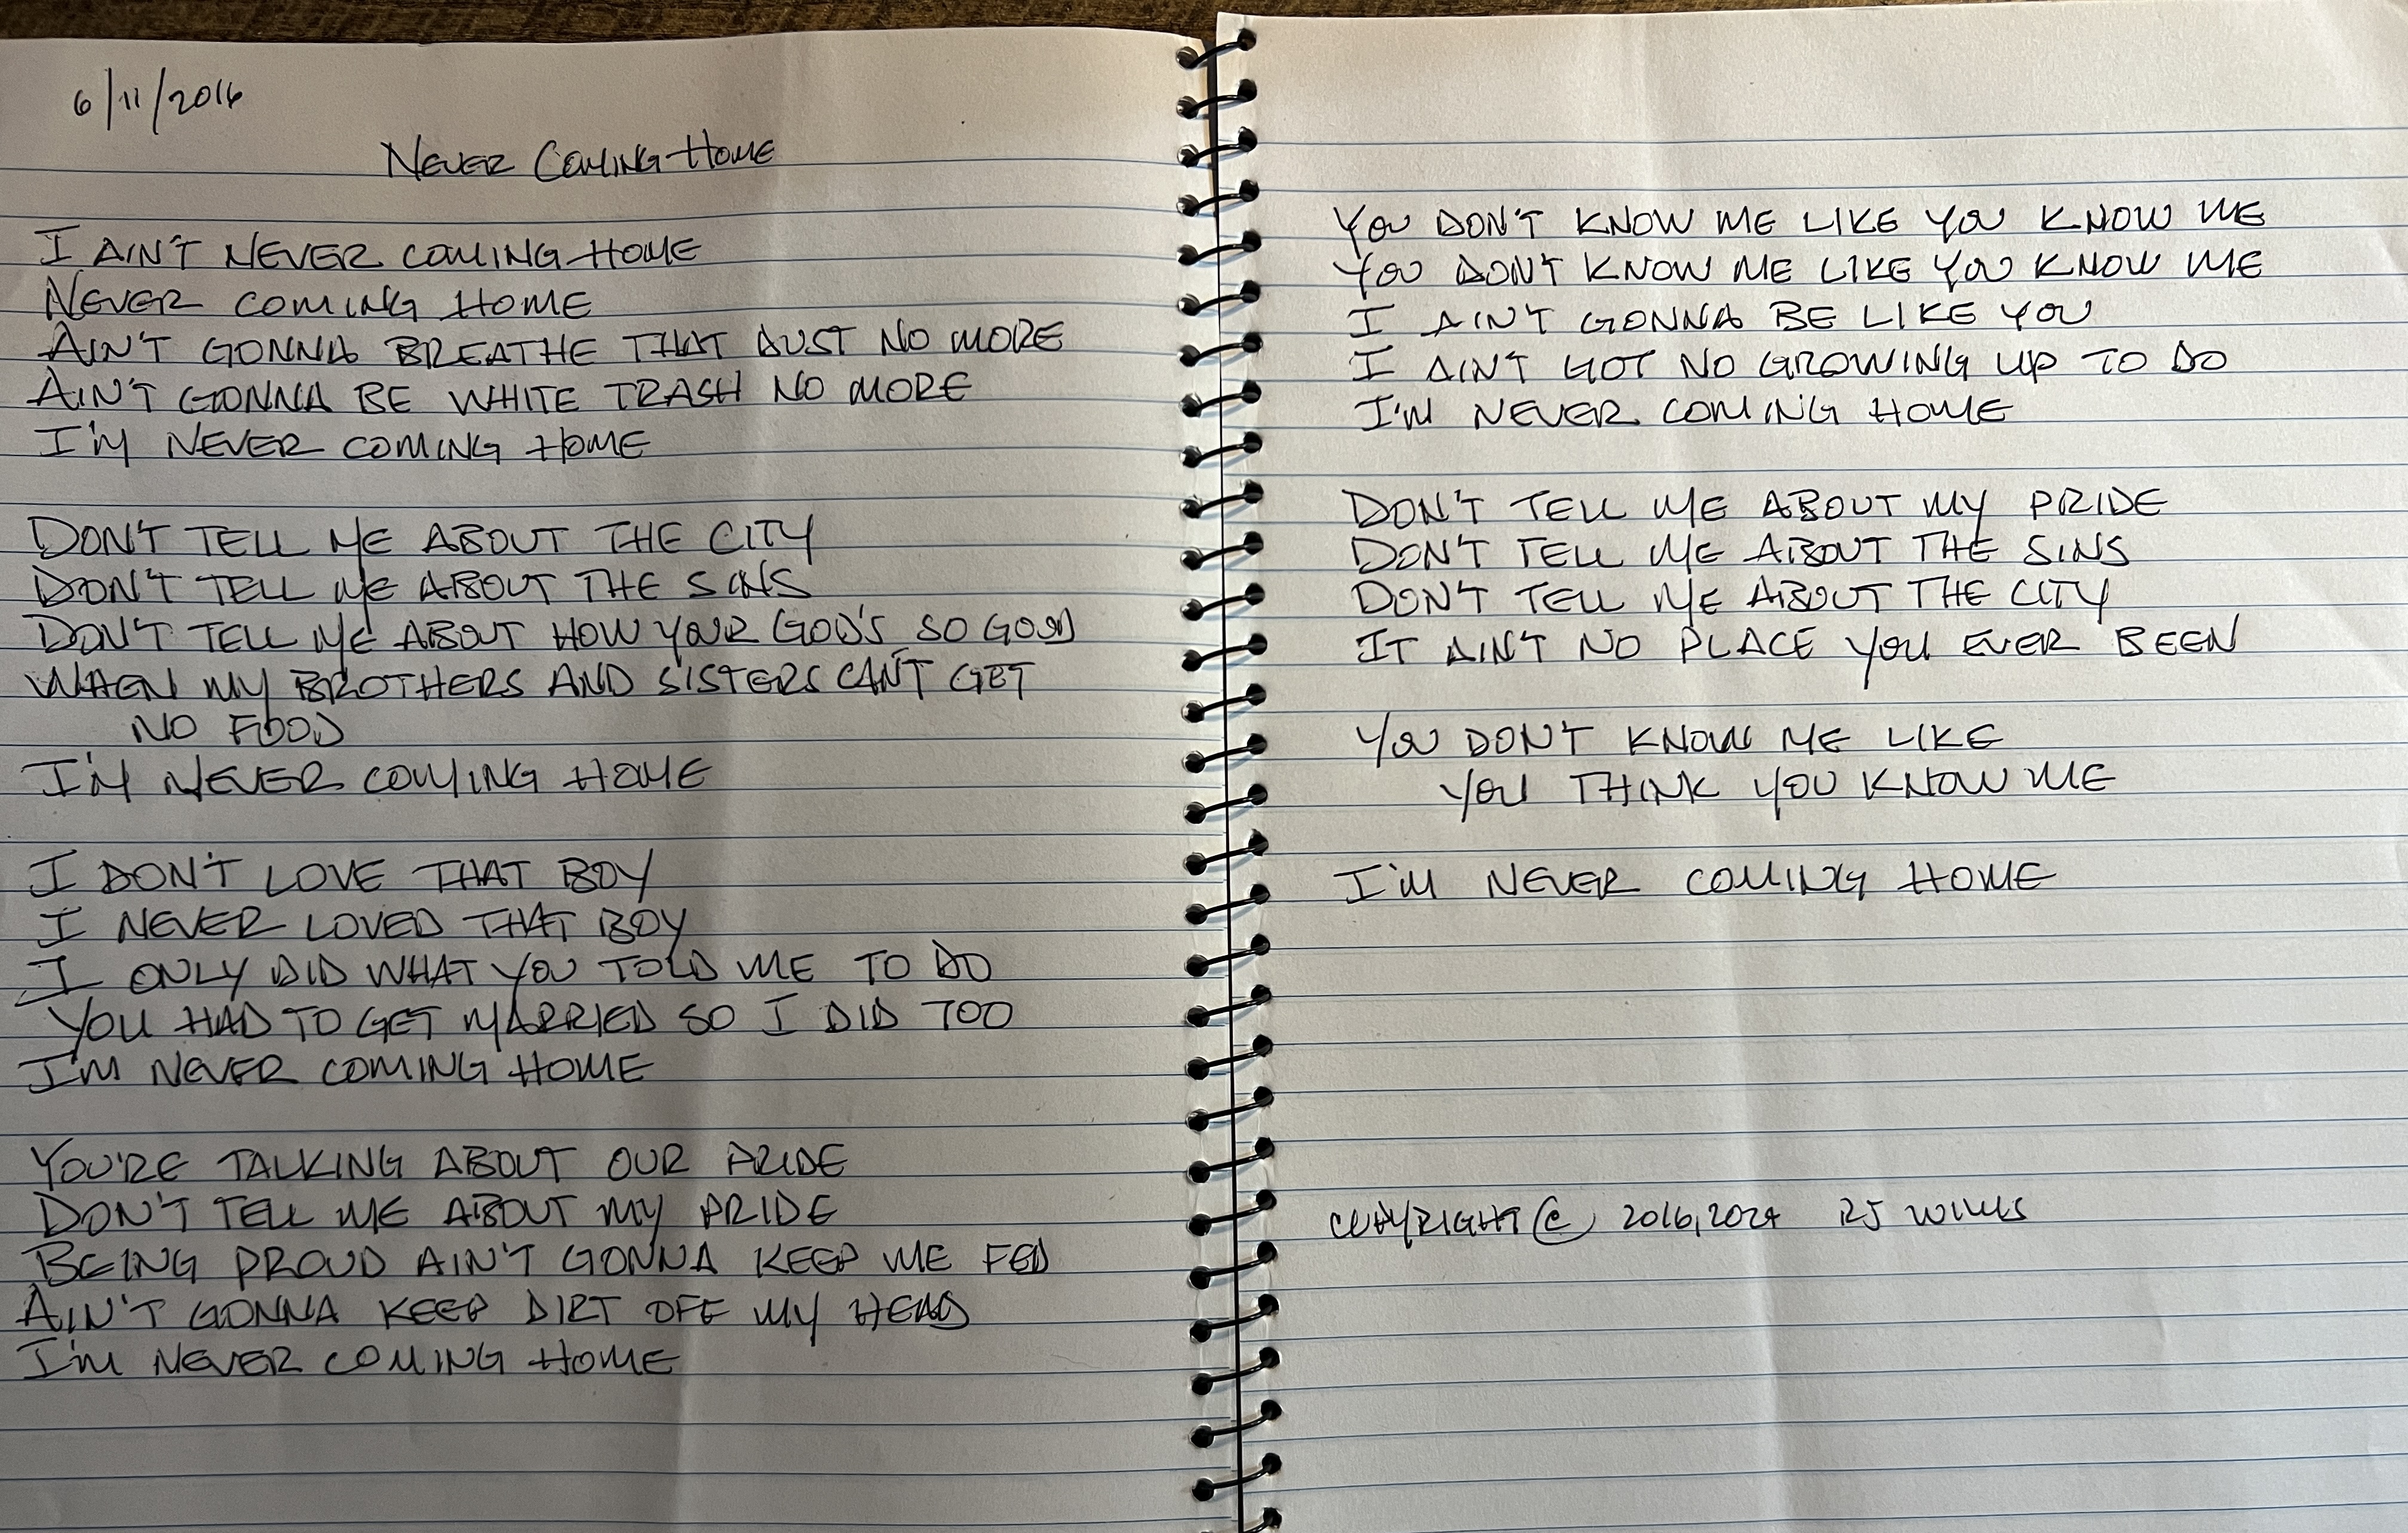 6/11/2016
NEVER COMING HOME
I AIN'T NEVER COMING HOME
NEVER COMING HOME
AIN'T GONNA BREATHE THAT DUST NO MORE
AIN'T GONNA BE WHITE TRASH NO MORE
I'M NEVER COMING HOME
DON'T TELL ME ABOUT THE CITY
DON'T TELL ME ABOUT THE SINS
DON'T TELL ME ABOUT HOW YOUR GOD'S SO GOOD
WHEN MY BROTHERS AND SISTERS CAN'T GET
NO FOOD
I'M NEVER COMING HOME
I DON'T LOVE THAT BOY
I NEVER LOVED THAT BOY
I ONLY DID WHAT YOU TOLD ME TO DO
YOU HAD TO GET MARRIED SO I DID TOO
I'M NEVER COMING HOME
YOU'RE TALKING ABOUT OUR PRIDE
DON'T TELL ME ABOUT MY PRIDE
BEING PROUD AIN'T GONNA KEEP ME FED
AIN'T GONNA KEEP DIRT OFF MY HEAD
I'M NEVER COMING HOME
YOU DON'T KNOW ME LIKE YOU KNOW ME
YOU DON'T KNOW ME LIKE YOU KNOW ME
I AIN'T GONNA BE LIKE YOU
I AIN'T GOT NO GROWING UP TO DO
I'M NEVER COMING HOME
DON'T TELL ME ABOUT MY PRIDE
DON'T TELL ME ABOUT THE SINS
DON'T TELL ME ABOUT THE CITY
IT AIN'T NO PLACE YOU EVER BEEN
YOU DON'T KNOW ME LIKE
YOU THINK YOU KNOW ME
I'M NEVER COMING HOME
COPYRIGHT © 2016, 2024 RJ